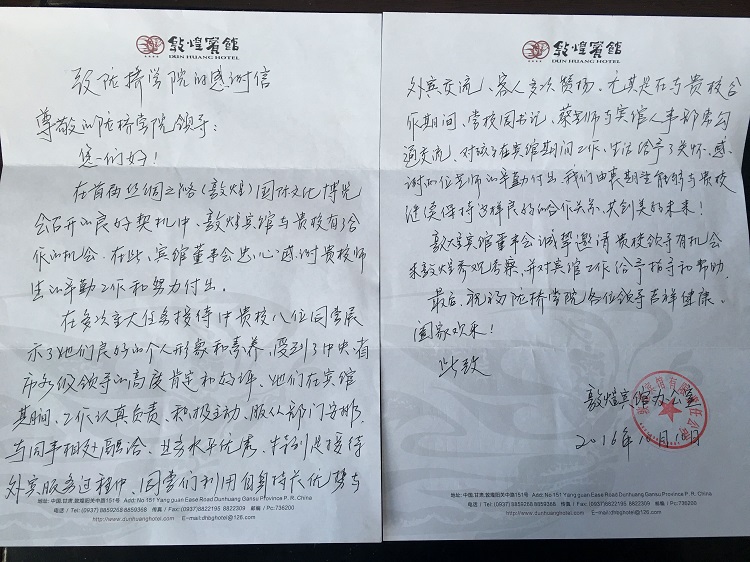 敦煌賓館
DUN HUANG HOTEL
致陇桥学院的感谢信
尊敬的陇桥学院领导:
您们好!
在首届丝绸之路(敦煌)国际文化博览
会召开的良好契机中、敦煌宾馆与贵校有了合
作的机会。在此、宾馆董事会忠心感谢贵校师
生的辛勤工作和努力付出。
在多次重大任务接待中贵校八位同学展
示了她们良好的个人形象和素养,受到了中央、省
市各级领导的高度肯定和好评、她们在宾馆
其期间、工作认真负责、积极主动、服从部门安排、
与同事相处融洽、业务水平优秀、特别是接待
外宾服务过程中、同学们利用自身特长优势与
地址: 中国.甘肃.敦煌阳关中路151号 Add: No 151 Yang guan Ease Road Dunhuang Gansu Province P. R. China
电话 / Tel: (0937) 8859268 8859368 传真 / Fax: (0937)8822195 8822309 邮编 / Pc:736200
http://www.dunhuanghotel.com E-mail:dhbghotel@126.com
敦煌賓館
DUN HUANG HOTEL
外宾交流、客人多次赞扬、尤其是在与贵校合
作期间、学校周书记、蔡老师与宾馆人事部密切
沟通交流、对孩子在宾馆期间工作、生活给予了关怀、感
谢两位老师的辛勤付出、我们由衷期望能够与贵校
继续保持这样良好的合作关系、共创美好未来!
敦煌宾馆董事会诚挚邀请贵校领导有机会
来敦煌参观考察、并对宾馆工作给予指导和帮助。
最后、祝愿陇桥学院各位领导吉祥健康、
阖家欢乐!
此致
敦煌宾馆办公室
2016年10月10日
地址: 中国.甘肃.敦煌阳关中路151号 Add: No 151 Yang guan Ease Road Dunhuang Gansu Province P. R. China
电话 / Tel: (0937) 8859268 8859368 传真 / Fax: (0937)8822195 8822309 邮编 / Pc:736200
http://www.dunhuanghotel.com E-mail:dhbghotel@126.com